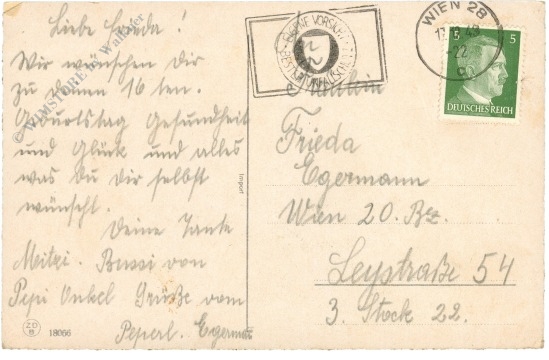 Liebe Frieda!
Wir wünschen dir
zu deinen 16 ten.
Geburtstag Gesundheit
und Glück und alles
was du dir selbst
wünscht.
Deine Tante
Mitzi. Bussi von
Pepi Onkel Grüße vom
Peperl. Egermann
ZD
8
18066
Import
WIEN 28
43
-22
5 5
DEUTSCHES REICH
Fräulein
Frieda
Egermann
Wien 20. Bez.
Leystraße 54
3. Stock 22.